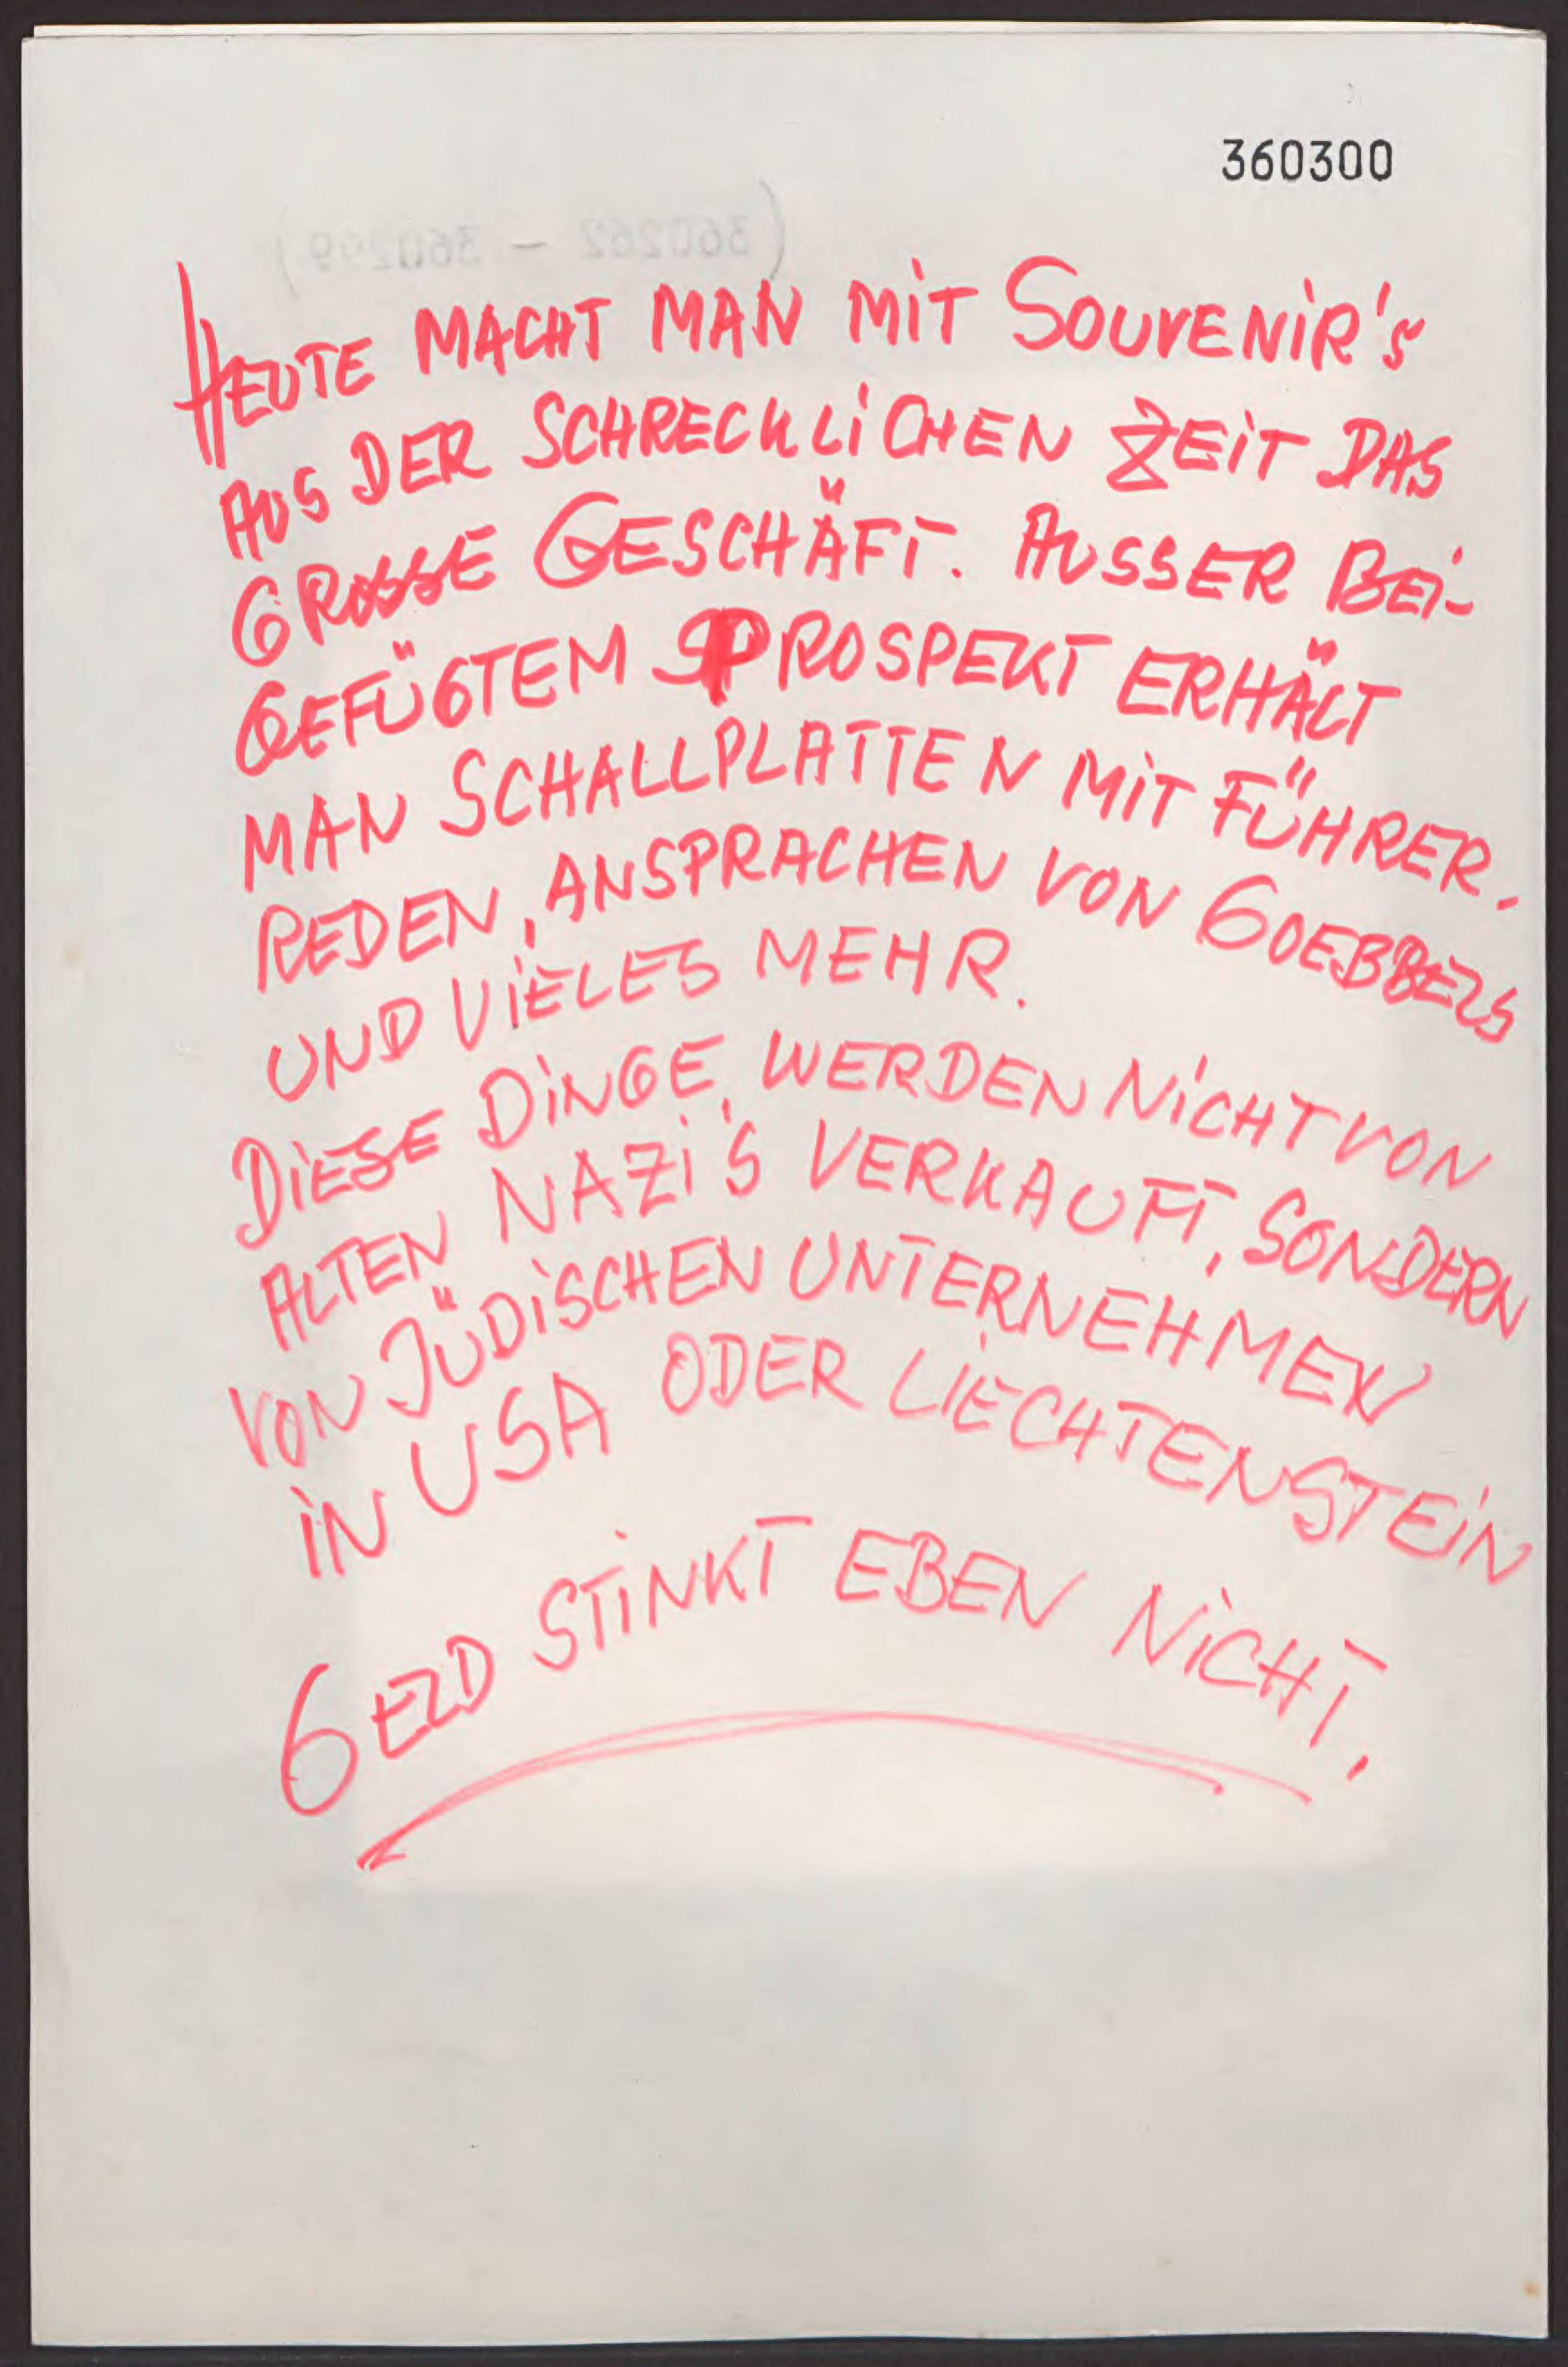 360300
(360262 - 360299)
HEUTE MACHT MAN MIT SOUVENIR'S
AUS DER SCHRECKLICHEN ZEIT DAS
GROSSE GESCHÄFT. AUSSER BEI-
GEFÜGTEM PROSPEKT ERHÄLT
MAN SCHALLPLATTEN MIT FÜHRER-
REDEN, ANSPRACHEN VON GOEBBELS
UND VIELES MEHR.
DIESE DINGE, WERDEN NICHT VON
ALTEN NAZI'S VERKAUFT, SONDERN
VON JÜDISCHEN UNTERNEHMEN
IN USA ODER LIECHTENSTEIN
GELD STINKT EBEN NICHT,